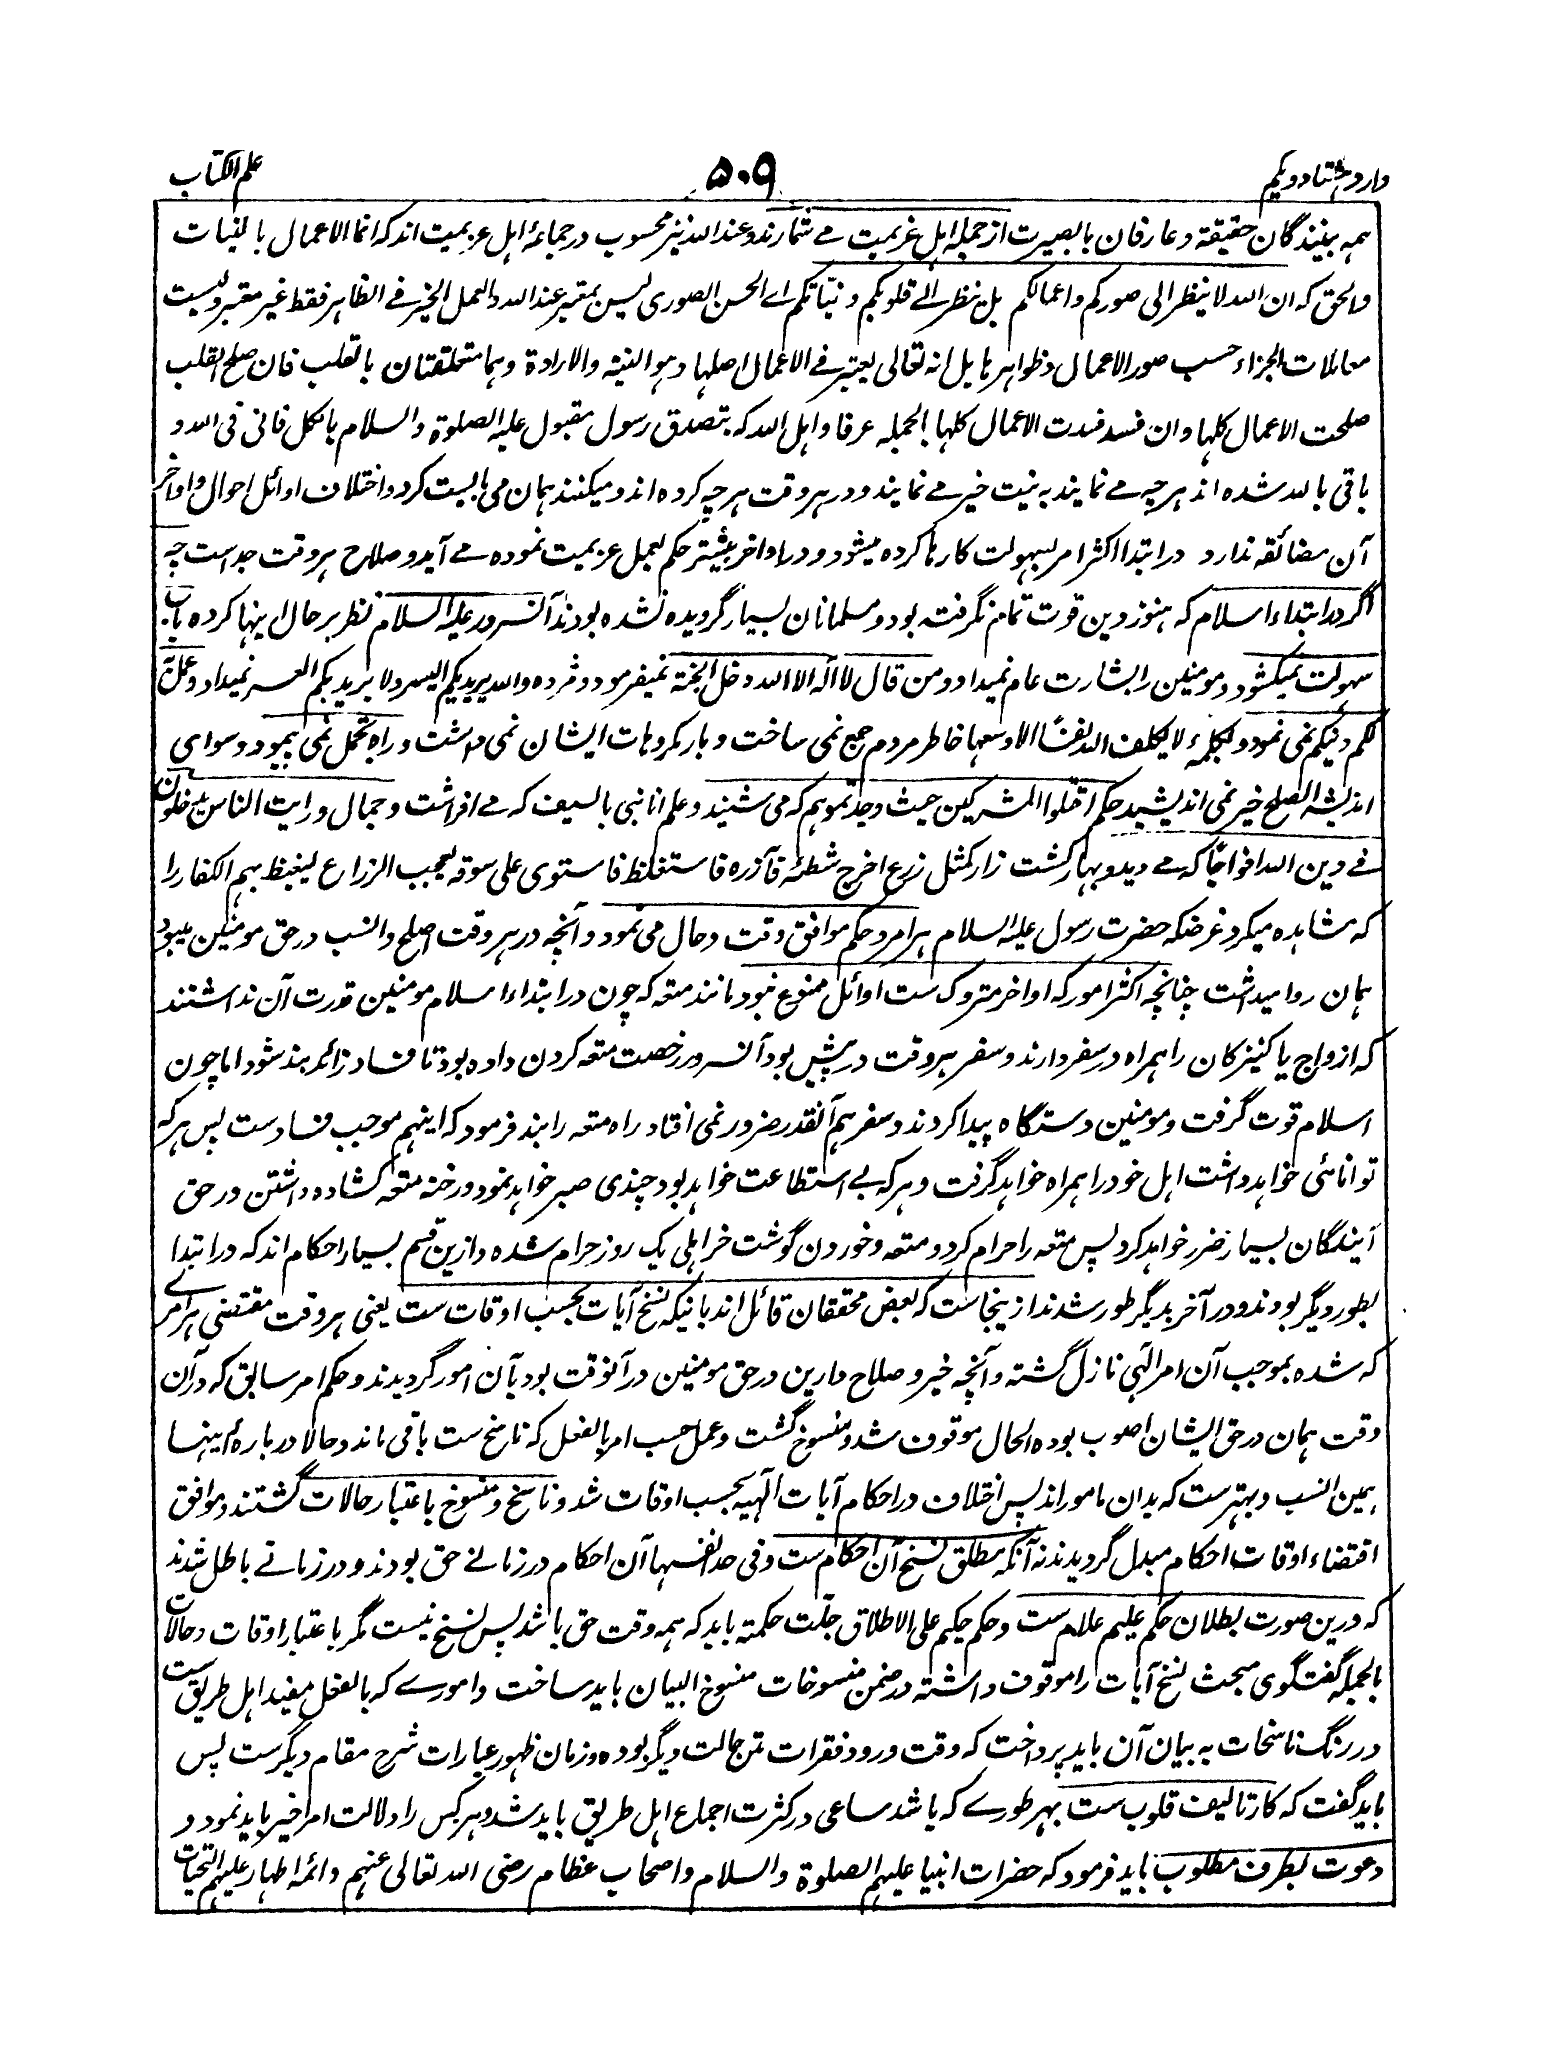 وارد هشتاد و یکم
۵۰۹
علم الکتاب
همه بینندگان حقیقة و عارفان با بصیرت از جمله اهل عزیمت مے شمارند و عند الله نیز محسوب در جماعهٔ اهل عزیمت اند که انما الاعمال بالنیات
والحق که ان الله لا ینظر الی صورکم و اعمالکم بل ینظر الے قلوبکم و نیاتکم اے الحسن الصوری لیس بمعتبر عند الله والعمل الخیر فے الظاهر فقط غیر معتبر ولیست
معاملات الجزاء حسب صور الاعمال و ظواهرها بل انه تعالی یعتبر فے الاعمال اصلها و هو النیة والارادة و هما متعلقتان بالقلب فان صلح القلب
صلحت الاعمال کلها و ان فسد فسدت الاعمال کلها بالجمله عرفا و اهل الله که بتصدق رسول مقبول علیه الصلوة والسلام بالکل فانی فی الله و
باقی بالله شده اند هر چه مے نمایند به نیت خیر مے نمایند و در هر وقت هر چه کرده اند و میکنند همان می بایست کرد و اختلاف اوائل احوال و اواخر
آن مضائقه ندارد در ابتدا اکثر امر بسهولت کارها کرده میشود و در اواخر بیشتر حکم بعمل عزیمت نموده مے آید و صلاح هر وقت جداست چه
اگر در ابتداء اسلام که هنوز دین قوت تمام نگرفته بود و مسلمانان بسیار گرویده نشده بودند آنسرور علیه السلام نظر بر حال اینها کرده باب
سهولت نمیکشود و مومنین را بشارت عام نمیداد و من قال لا اله الا الله دخل الجنة نمیفرمود و مژده والله یرید بکم الیسر و لا یرید بکم العسر نمیداد و عمل بر
لکم دینکم نمی نمود و بکلمهٔ لا یکلف الله نفسًا الا وسعها خاطر مردم جمع نمی ساخت و بار مکروهات ایشان نمی داشت و راه تحمل نمی پیمود و سوای
اندیشه الصلح خیر نمی اندیشید حکم اقتلوا المشرکین حیث وجدتموهم که می شنید و علم انا نبی بالسیف که مے افراشت و جمال و رایت الناس یدخلون
فے دین الله افواجًا که مے دید و بهار کشت زار کمثل زرع اخرج شطئه فآزره فاستغلظ فاستوی علی سوقه یعجب الزراع لیغیظ بهم الکفار را
که مشاهده میکرد غرضکه حضرت رسول علیه السلام هر امر و حکم موافق وقت و حال می نمود و آنچه در هر وقت اصلح و انسب در حق مومنین میبود
همان روا میداشت چنانچه اکثر امور که اواخر متروک ست اوائل ممنوع نبود مانند متعه که چون در ابتداء اسلام مومنین قدرت آن نداشتند
که ازواج یا کنیزکان را همراه در سفر دارند و سفر هر وقت در پیش بود آنسرور رخصت متعه کردن داده بود تا فساد زنا هم بند شود اما چون
اسلام قوت گرفت و مومنین دستگاه پیدا کردند و سفر هم آنقدر ضرور نمی افتاد راه متعه را بند فرمود که اینهم موجب فساد ست پس هر که
توانائی خواهد داشت اهل خود را همراه خواهد گرفت و هر که بے استطاعت خواهد بود چندی صبر خواهد نمود و رخنه متعه کشاده داشتن در حق
آیندگان بسیار ضرر خواهد کرد پس متعه را حرام کرد و متعه و خوردن گوشت خر اهلی یک روز حرام شده و ازین قسم بسیار احکام اند که در ابتدا
بطور دیگر بودند و در آخر بدیگر طور شدند از ینجاست که بعض محققان قائل اند بانیکه نسخ آیات بحسب اوقات ست یعنی هر وقت مقتضی هر امرے
که شده بموجب آن امر الٰهی نازل گشته و آنچه خیر و صلاح دارین در حق مومنین در آنوقت بود بآن امور گردیدند و حکم امر سابق که در آن
وقت همان در حق ایشان اصوب بوده الحال موقوف شد و منسوخ گشت و عمل حسب امر بالفعل که ناسخ ست باقی ماند و حالا در بارهٔ اینها
همین انسب و بهتر ست که بدان مامور اند پس اختلاف در احکام آیات الٰهیه بحسب اوقات شد و ناسخ و منسوخ باعتبار حالات گشتند و موافق
اقتضاء اوقات احکام مبدل گردیدند نه آنکه مطلق نسخ آن احکام ست و فی حد انفسها آن احکام در زمانے حق بودند و در زمانے باطل شدند
که درین صورت بطلان حکم علیم علام ست و حکم حکیم علی الاطلاق جلت حکمته باید که همه وقت حق باشد پس نسخ نیست مگر باعتبار اوقات و حالات
بالجمله گفتگوی مبحث نسخ آیات را موقوف داشته در ضمن منسوخات منسوخ البیان باید ساخت و امورے که بالفعل مفید اهل طریق ست
در رنگ ناسخات به بیان آن باید پرداخت که وقت ورود فقرات متن حالت دیگر بوده و زمان ظهور عبارات شرح مقام دیگرست پس
باید گفت که کار تالیف قلوب ست بهر طورے که باشد ساعی در کثرت اجماع اهل طریق باید شد و هر کس را دلالت امر خیر باید نمود و
دعوت بطرف مطلوب باید فرمود که حضرات انبیا علیهم الصلوة والسلام و اصحاب عظام رضی الله تعالی عنهم و ائمهٔ اطهار علیهم التحیات